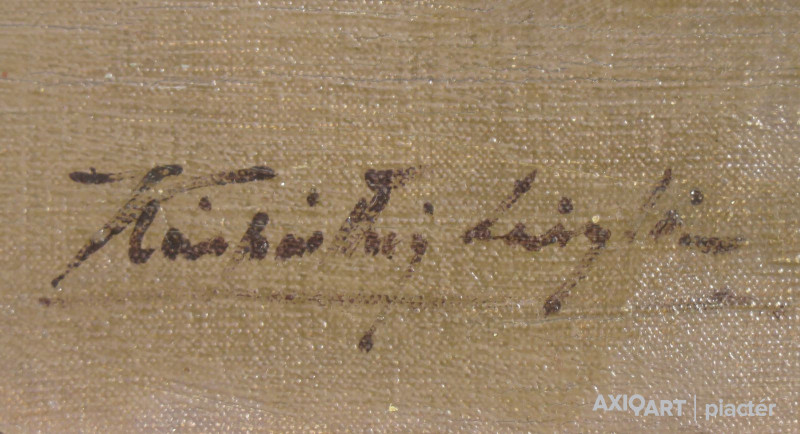 Kárpáthy László
AXIOART | piactér